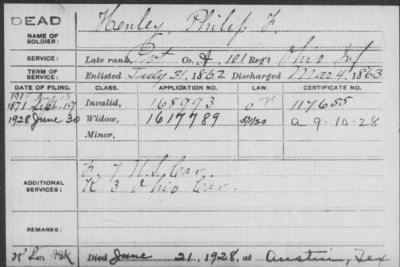 DEAD
NAME OF SOLDIER: Henley, Philip F.
SERVICE: Late rank Pvt Co. A, 101 Reg't Ohio Inf
TERM OF SERVICE: Enlisted July 31, 1862 Discharged Mar. 4, 1863
DATE OF FILING. CLASS. APPLICATION NO. LAW. CERTIFICATE NO.
1871 Invalid, 168973 117655
1928 June 30 Widow, 1617789 5/1/20 a 9-10-28
Minor,
ADDITIONAL SERVICES: F. 7 U.S. Cav.
K 3 Ohio Cav.
REMARKS:
Died June 21, 1928, at Austin, Tex